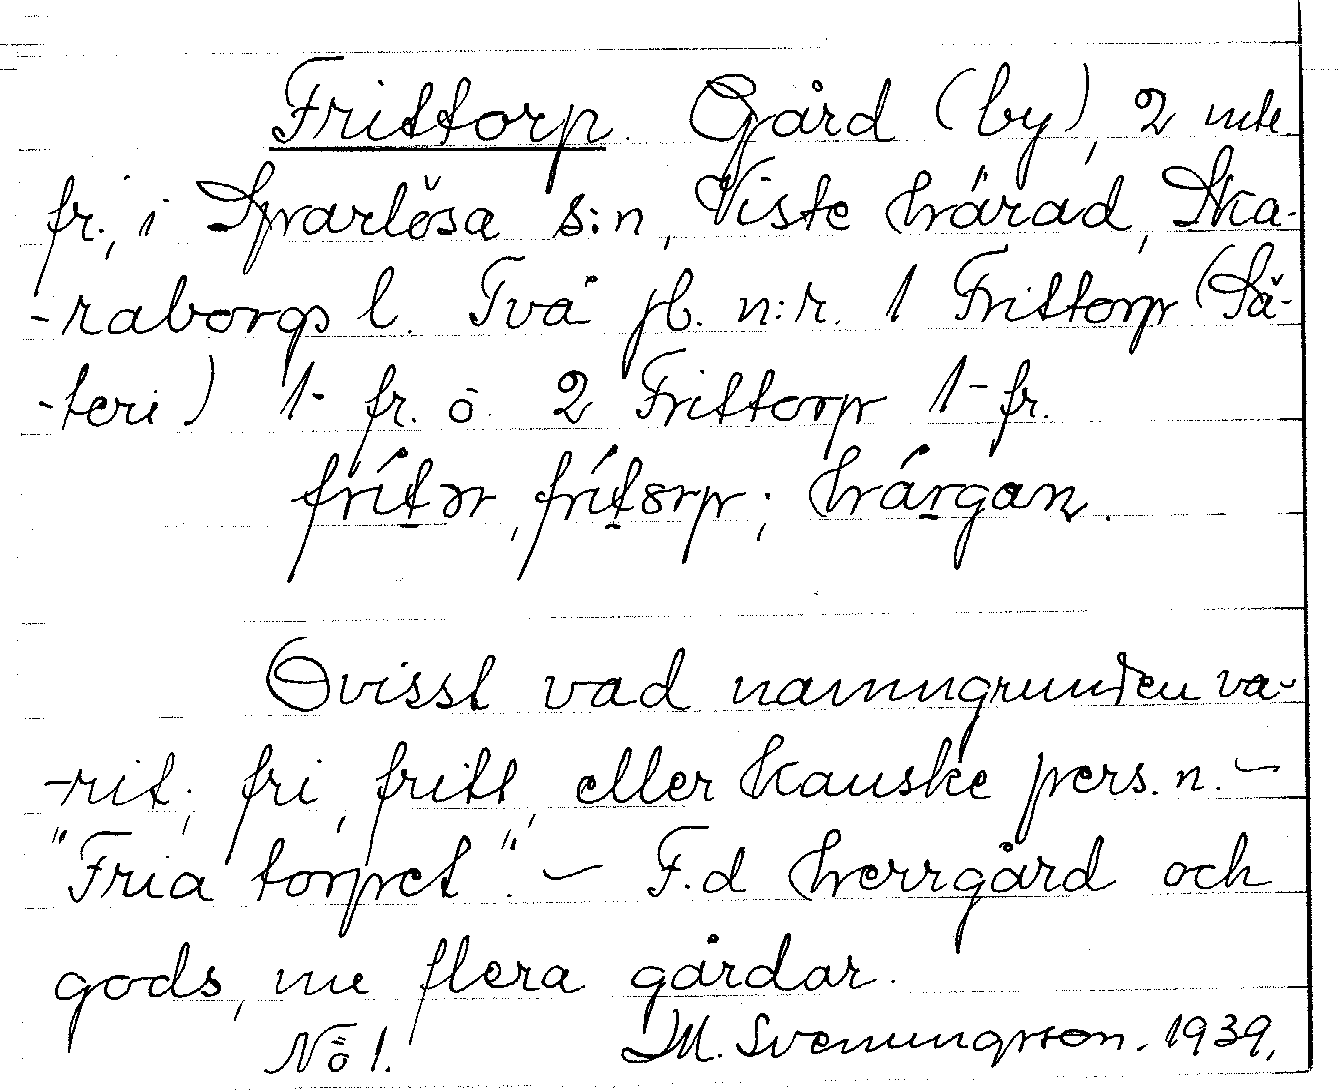 Frittorp. Gård (by), 2 mtl
fr., i Sparlösa s:n, Viste härad, Ska-
-raborgs l. Två jb. n:r. 1 Frittorp (Sä-
-teri) 1- fr. o 2 Frittorp 1- fr.
frítər, frítorp; hárgan.
Ovisst vad namngrunden va-
-rit; fri, fritt, eller kanske pers.n. –
"Fria torpet". – F.d herrgård och
gods, nu flera gårdar.
No 1. M. Svenungsson. 1939.